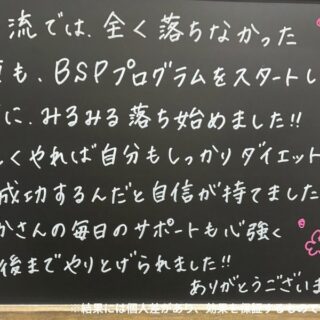 流では、全く落ちなかった
も、BSPプログラムをスタートし
に、みるみる落ち始めました!!
くやれば自分もしっかりダイエット
成功するんだと自信が持てました
かさんの毎日のサポートも心強く
後までやりとげられました!!
ありがとうござい
※結果には個人差があり、効果を保証するもので